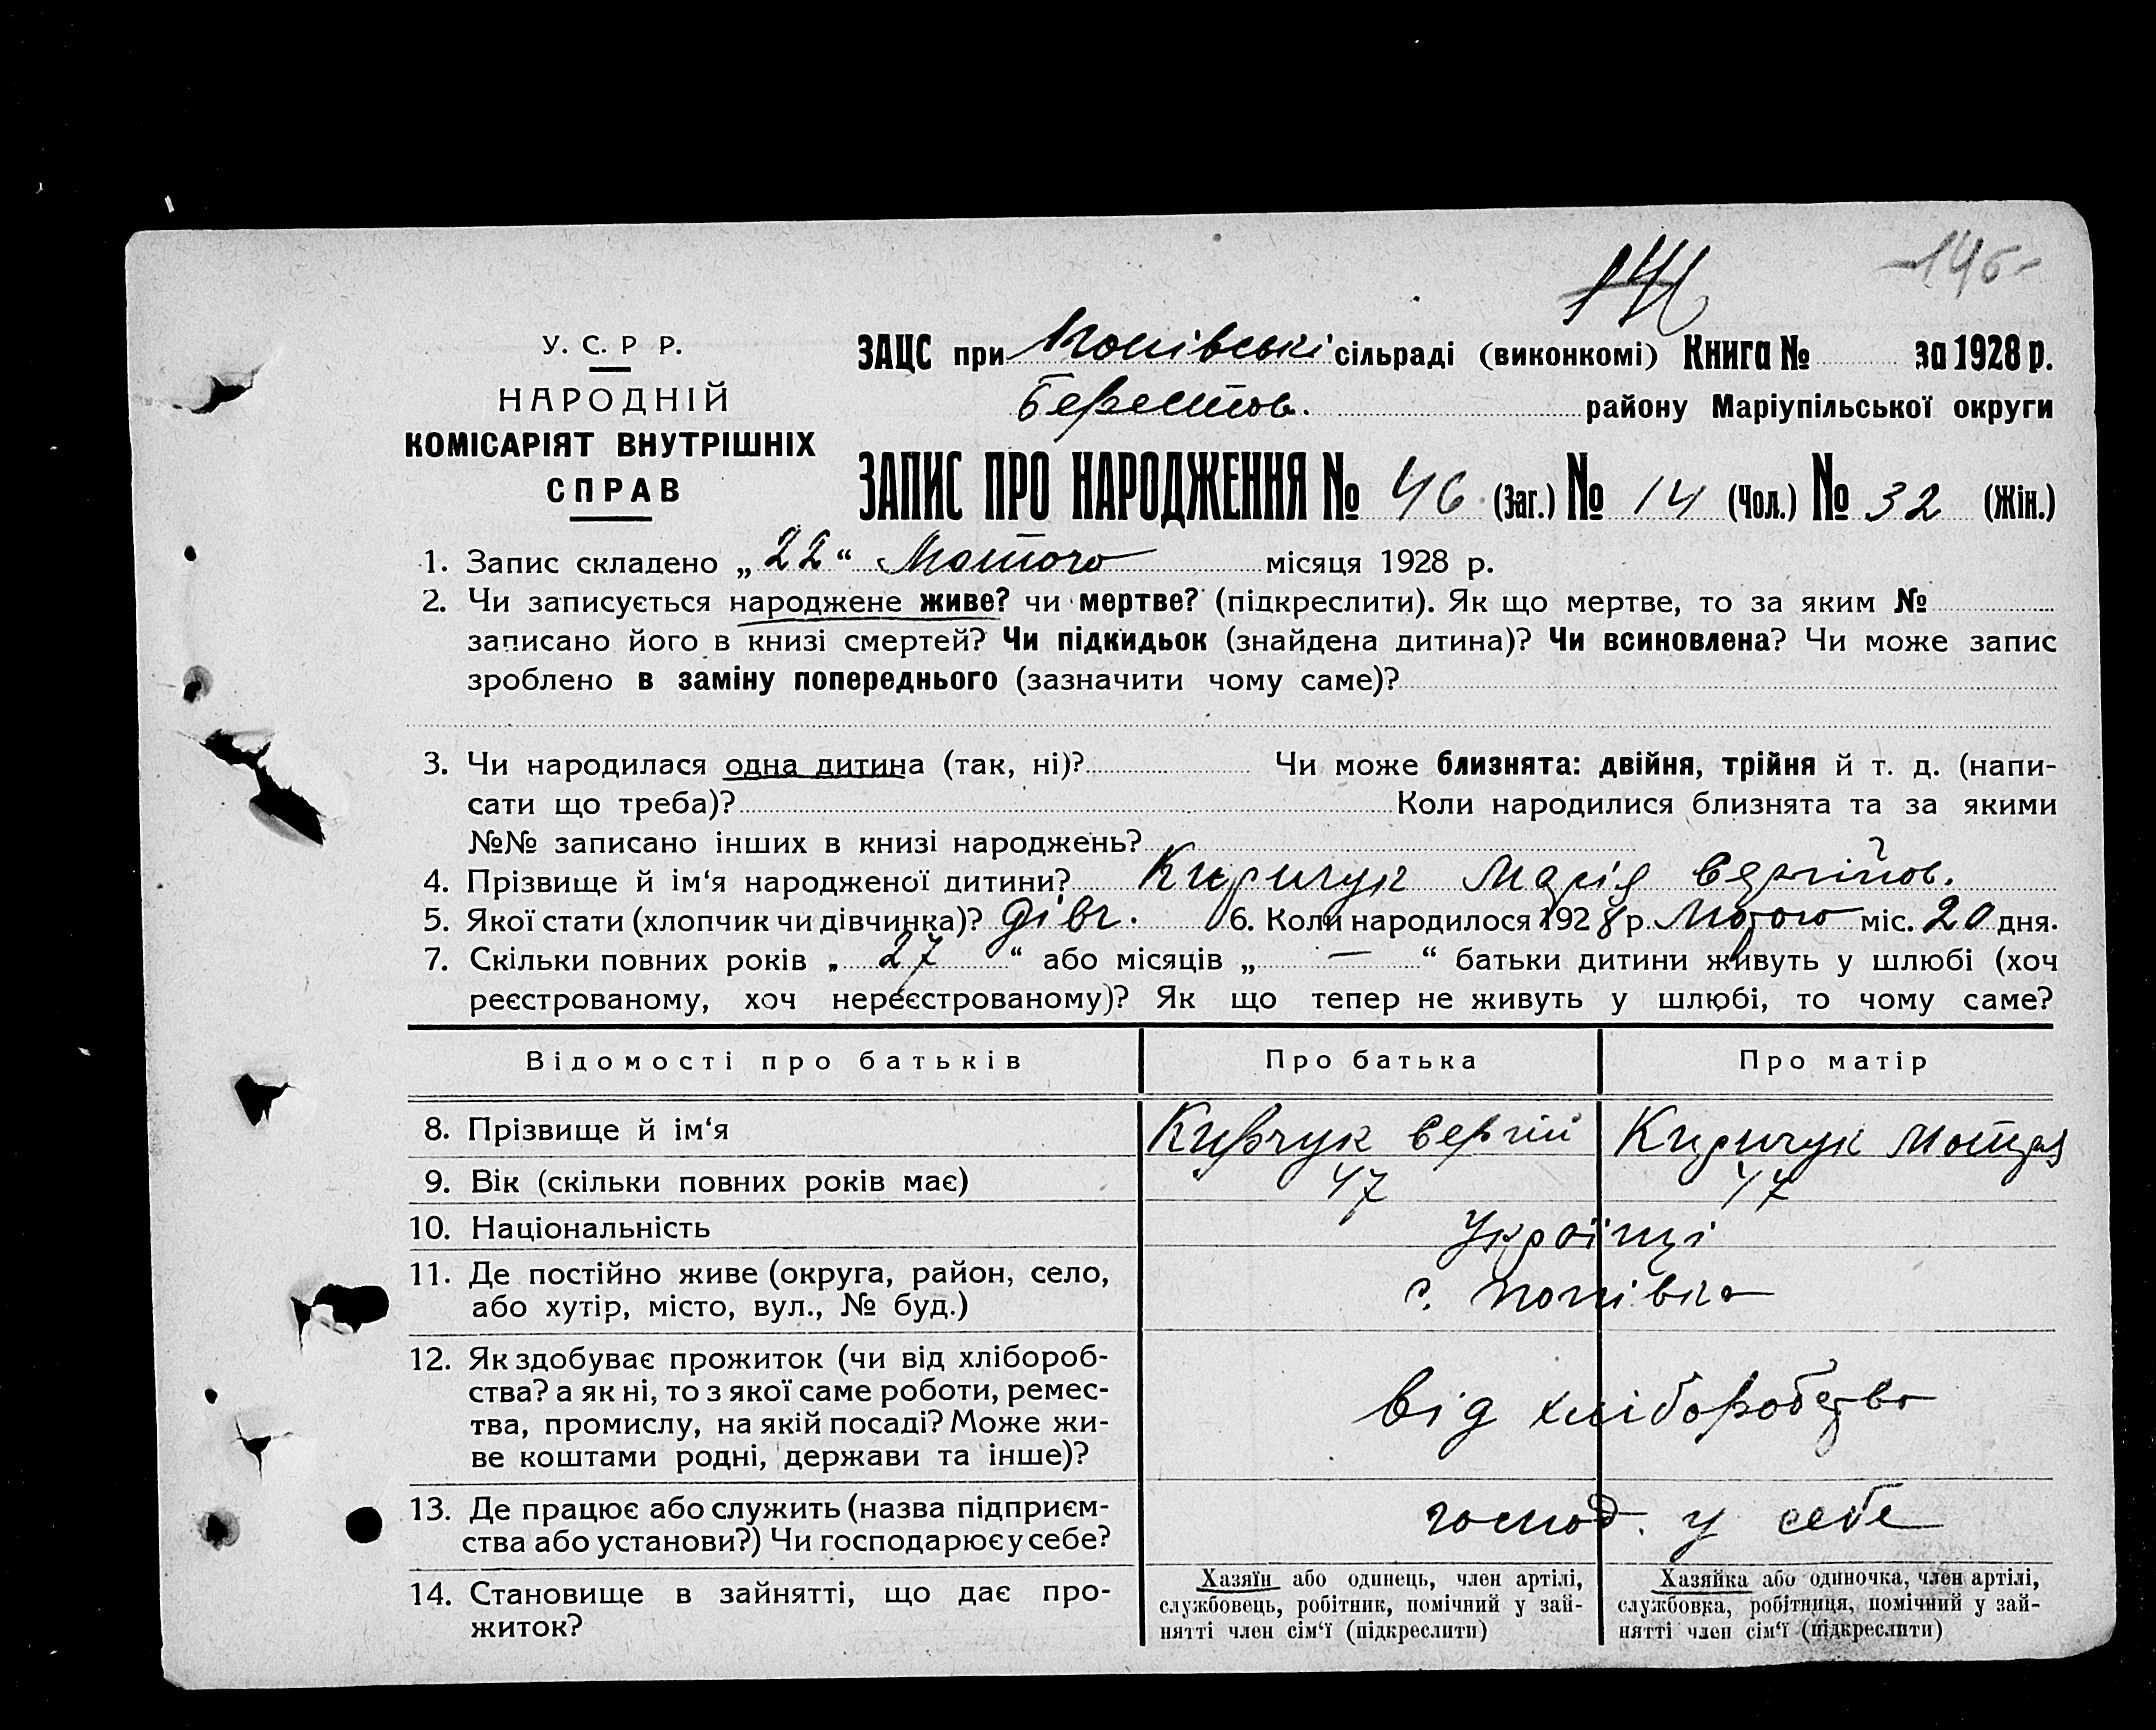 -146-
У. С. Р Р.
НАРОДНІЙ
КОМІСАРІЯТ ВНУТРІШНІХ
СПРАВ
ЗАЦС при Попівські сільраді (виконкомі) Книга № за 1928 р.
Берестов. району Маріупільської округи
ЗАПИС ПРО НАРОДЖЕННЯ № 46 (Заг.) № 14 (Чол.) № 32 (Жін.)
1. Запис складено „22“ Лютого місяця 1928 р.
2. Чи записується народжене живе? чи мертве? (підкреслити). Як що мертве, то за яким №
записано його в книзі смертей? Чи підкидьок (знайдена дитина)? Чи всиновлена? Чи може запис
зроблено в заміну попереднього (зазначити чому саме)?
3. Чи народилася одна дитина (так, ні)? Чи може близнята: двійня, трійня й т. д. (напи-
сати що треба)? Коли народилися близнята та за якими
№№ записано інших в книзі народжень?
4. Прізвище й ім‘я народженої дитини? Киричук Марія Сергійов.
5. Якої стати (хлопчик чи дівчинка)? дівч. 6. Коли народилося 1928 р. Лютого міс. 20 дня.
7. Скільки повних років „27“ або місяців „—“ батьки дитини живуть у шлюбі (хоч
реєстрованому, хоч нереєстрованому)? Як що тепер не живуть у шлюбі, то чому саме?
Відомості про батьків Про батька Про матір
8. Прізвище й ім‘я Кирчук Сергій Киричук Мотря
9. Вік (скільки повних років має) 47 47
10. Національність Українці
11. Де постійно живе (округа, район, село,
або хутір, місто, вул., № буд.) с. Попівка
12. Як здобуває прожиток (чи від хлібороб-
ства? а як ні, то з якої саме роботи, ремес-
тва, промислу, на якій посаді? Може жи-
ве коштами родні, держави та інше)? від хліборобства
13. Де працює або служить (назва підприєм-
ства або установи?) Чи господарює у себе? господ. у себе
14. Становище в зайнятті, що дає про-
житок?
Хазяїн або одинець, член артілі,
службовець, робітник, помічний у зай-
нятті член сім‘ї (підкреслити)
Хазяйка або одиночка, член артілі,
службовка, робітниця, помічний у зай-
нятті член сім‘ї (підкреслити)